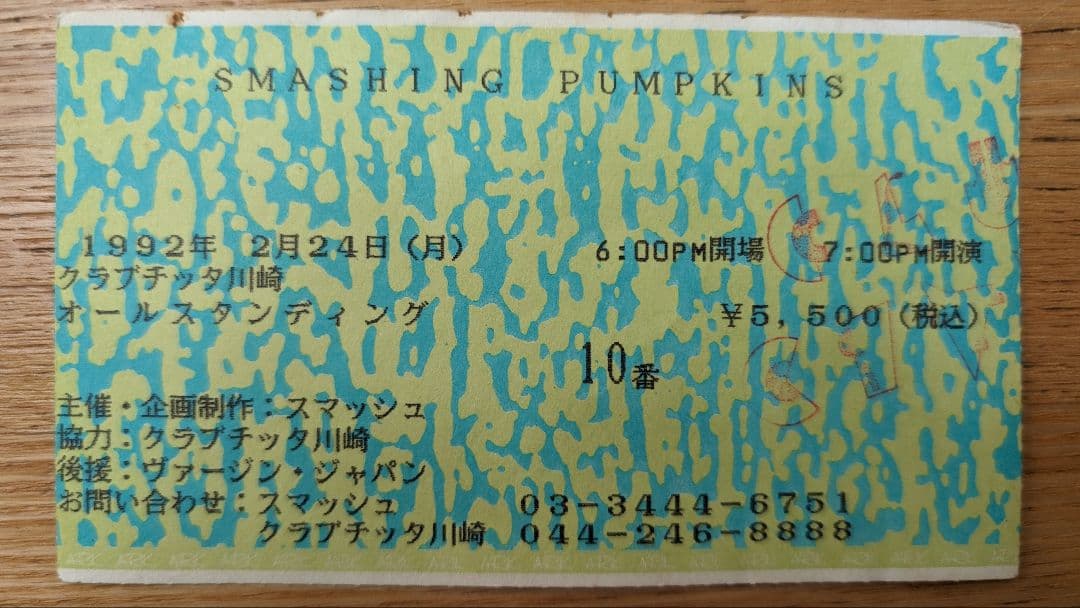 SMASHING PUMPKINS
1992年 2月24日(月) 6:00PM開場 7:00PM開演
クラブチッタ川崎
オールスタンディング ¥5,500(税込)
10番
主催・企画制作:スマッシュ
協力:クラブチッタ川崎
後援:ヴァージン・ジャパン
お問い合わせ:スマッシュ 03-3444-6751
クラブチッタ川崎 044-246-8888